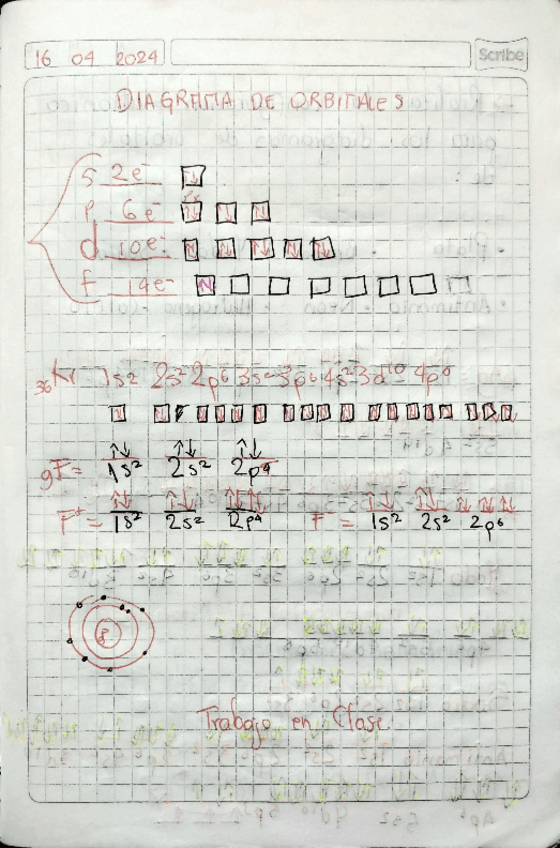 16 04 2024
Scribe
DIAGRAMA DE ORBITALES
S 2e-
P 6e-
d 10e-
f 14e-
36Kr 1s2 2s2 2p6 3s2 3p6 4s2 3d10 4p6
9F= ↑↓ 1s2 ↑↓ 2s2 ↑↓ 2p
F+= 1s2 2s2 2p4 F-= 1s2 2s2 2p6
Trabajo en Clase